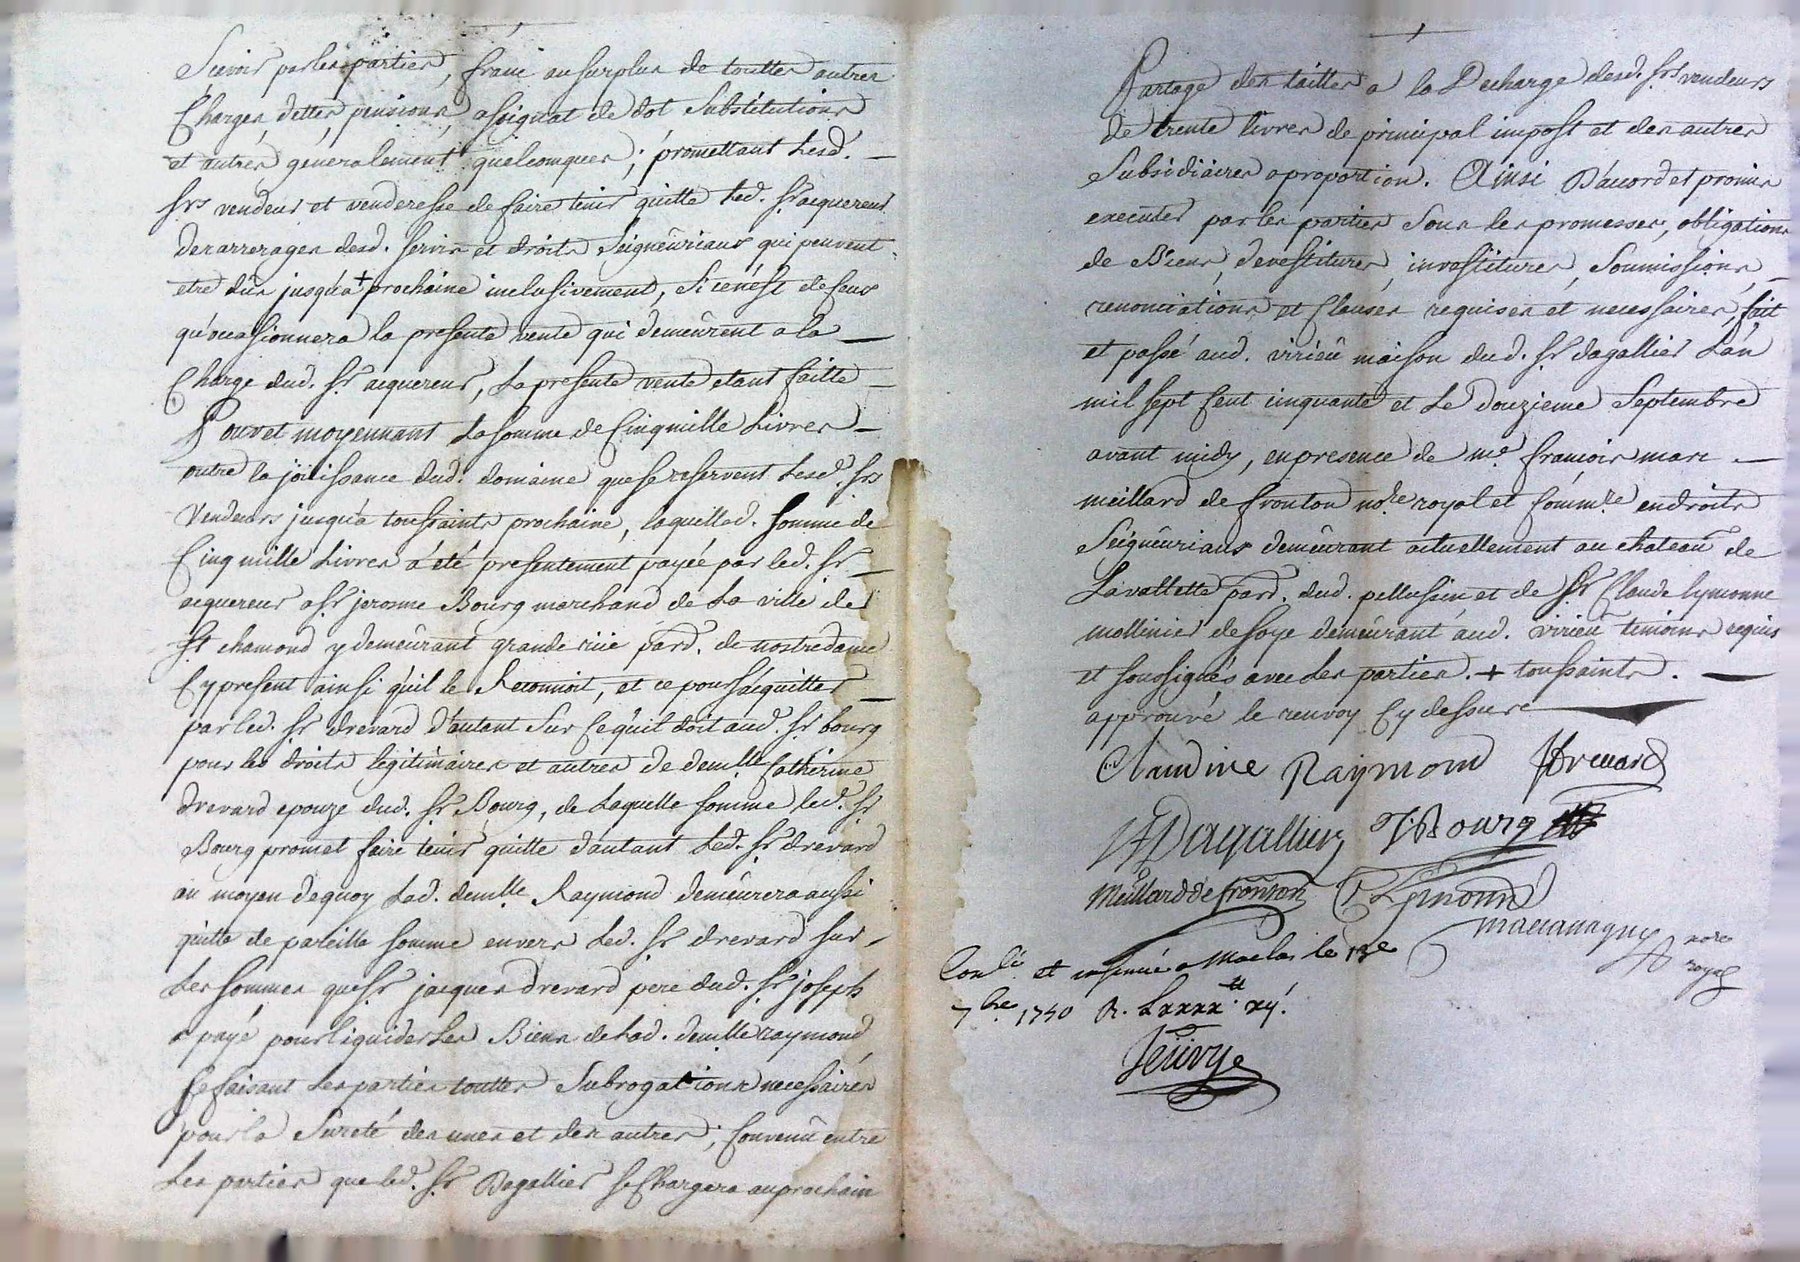 Sçevoir par les parties, franc au surplus de touttes autres
Charges, dettes, pensions, assignat de dot Substitutions
et autres généralement quelconques; promettant Lesd.
Srs vendeur et venderesse de faire tenir quitte Led. Sr acquereur
des arrerages desd. servis et droits Seigneuriaux qui peuvent
etre dûs jusqu'a + prochaine inclusivement, Si ce n'est de ceux
qu'occasionnera la presente vente qui demeurent a la
Charge dud. Sr acquereur, La presente vente etant faitte
Pour et moyennant La somme de Cinq mille Livres
outre la joüissance dud. domaine que se reservent Lesd. Srs
Vendeurs jusqu'a toussaints prochaine, laquelle d. Somme de
Cinq mille Livres a été presentement payée par led. Sr
acquereur a Sr jerosme Bourg marchand de La ville de
St chamond y demeurant grande rüe parr. de nostre dame
Cy present ainsi qu'il le Reconnoit, et ce pour s'acquitter
par led. Sr drevard d'autant Sur Ce qu'il doit aud. Sr bourg
pour les droits legitimaires et autres de demlle Catherine
drevard epouze dud. Sr Bourg, de Laquelle somme led. Sr
Bourg promet faire tenir quitte d'autant Led. Sr drevard
au moyen de quoy Lad. demlle Raymond demeurera aussi
quitte de pareille somme envers Led. Sr drevard sur
Les sommes que Sr jacques drevard pere dud. Sr joseph
a payé pour liquider Les Biens de Lad. demlle raymond
Se faisant Les parties touttes Subrogations necessaires
pour la Sureté des unes et des autres; Convenû entre
Les parties que led. Sr Dagallier se Chargera au prochain
Partage des tailles a la Decharge desd. Srs vendeurs
de trente livres de principal impost et des autres
Subsidiaires a proportion. Ainsi D'accord et promis
executer par les parties Sous les promesses, obligations
de Biens, devestitures, investitures, Soumissions,
renonciations et Clauses requises et necessaires, fait
et passé aud. virieû maison dud. Sr dagallier L'an
mil sept Cent cinquante et Le Douzieme Septembre
avant midy, en presence de me francois marc
meillard de fronton nore royal et Commre en droits
Seigneuriaux demeurant actuellement au chateau de
Lavallette parr. dud. pellussin et de Sr Claude lymonne
mollinier de soye demeurant aud. virieu temoins requis
et soussignés avec Les parties. + toussaints.
approuvé le renvoy Cy dessus
Claudine Raymond JDrevard
Dagallier J. Bourg
Meillard de fronton C Lymonne
nore
royal
Conlé et insinué a Maclas le 13e
7bre 1750 R. Lxxxx tt xij s.